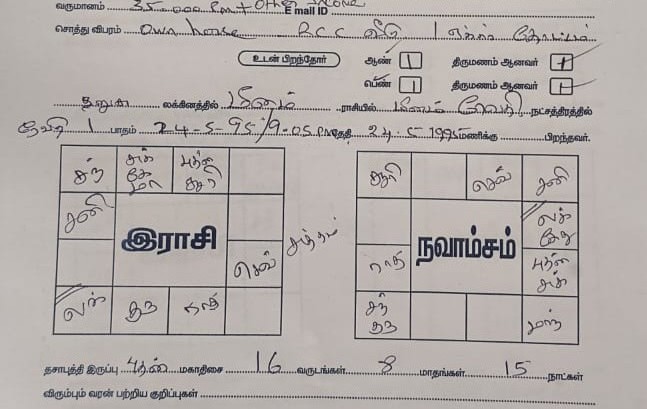 வருமானம் 35000 Pm + Other Income E mail ID
சொத்து விபரம் Own house RCC வீடு 1 ஏக்கர் தோட்டம்
உடன் பிறந்தோர் ஆண் 1 திருமணம் ஆனவர் +
பெண் 1 திருமணம் ஆனவர்
தனுசு லக்கினத்தில் மீனம் ராசியில் ரேவதி நட்சத்திரத்தில்
1 பாதம் 24-5-95 / 9-05 PM தேதி 24.5-1995 மணிக்கு பிறந்தவர்.
சந் சுக் கே மா புதன் சூரி
சனி
இராசி
செவ்
லக் குரு ராகு
சூரி செவ் சனி
லக் கேது
நவாம்சம்
ராகு புதன் சுக்
சந் குரு மாந்
தசாபுத்தி இருப்பு புதன் மகாதிசை 16 வருடங்கள் 8 மாதங்கள் 15 நாட்கள்
விரும்பும் வரன் பற்றிய குறிப்புகள்